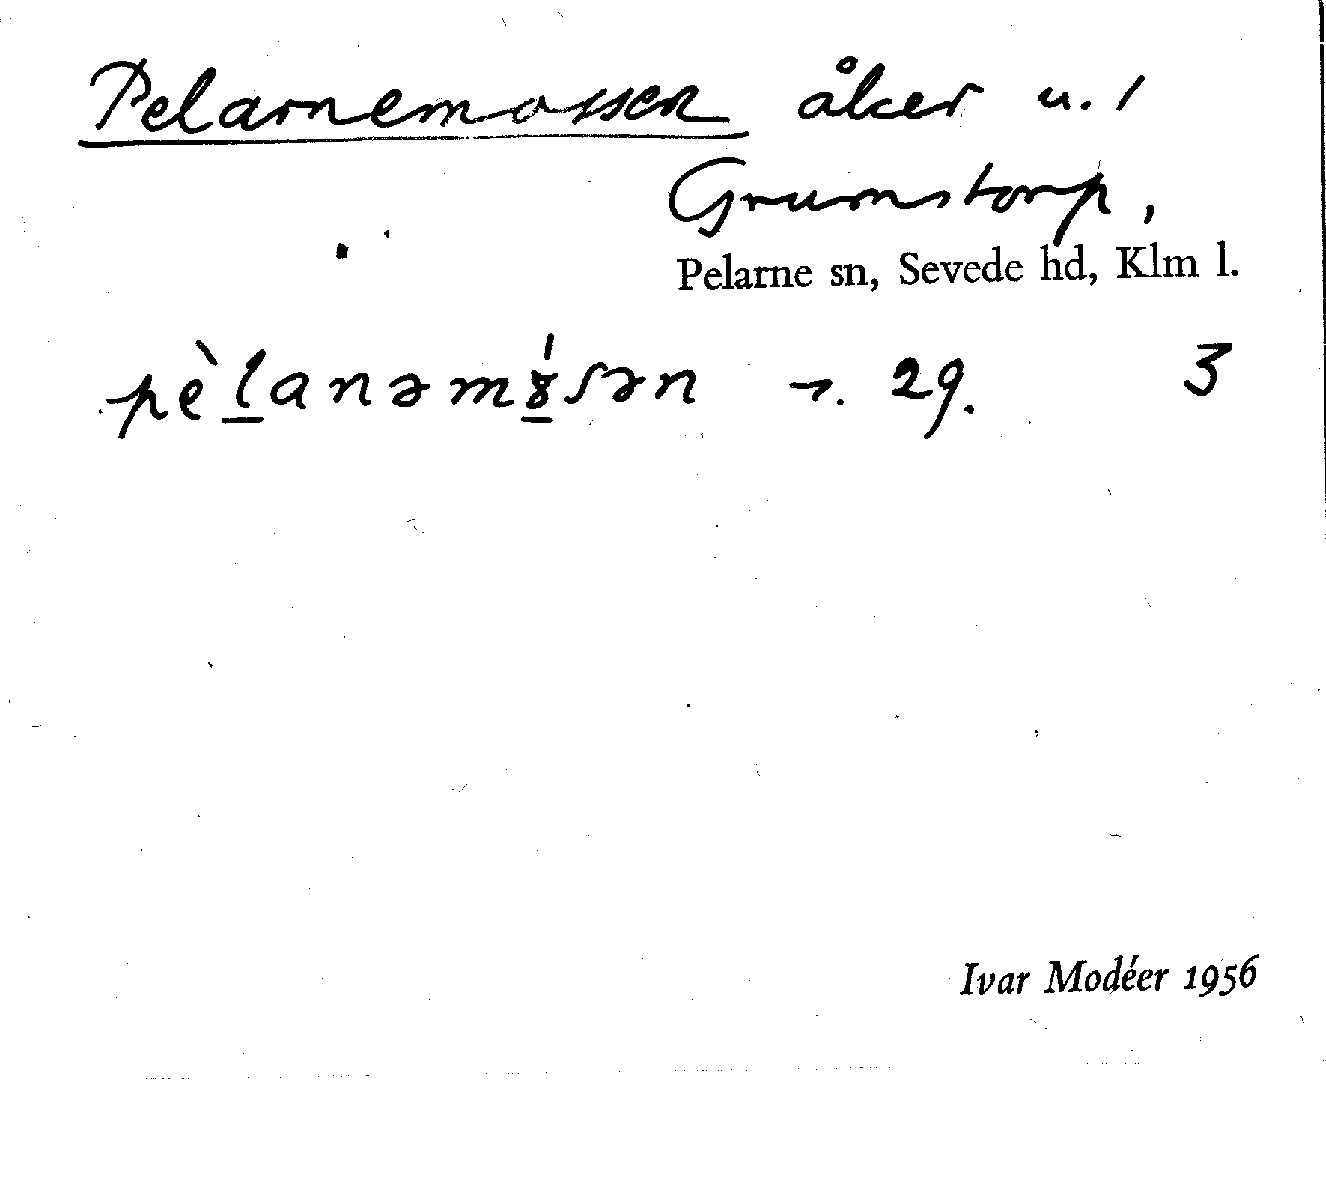 Pelarnemossen åker u. 1
Grumstorp,
Pelarne sn, Sevede hd, Klm l.
pèlanəmɤ́sən 29. 3
Ivar Modéer 1956